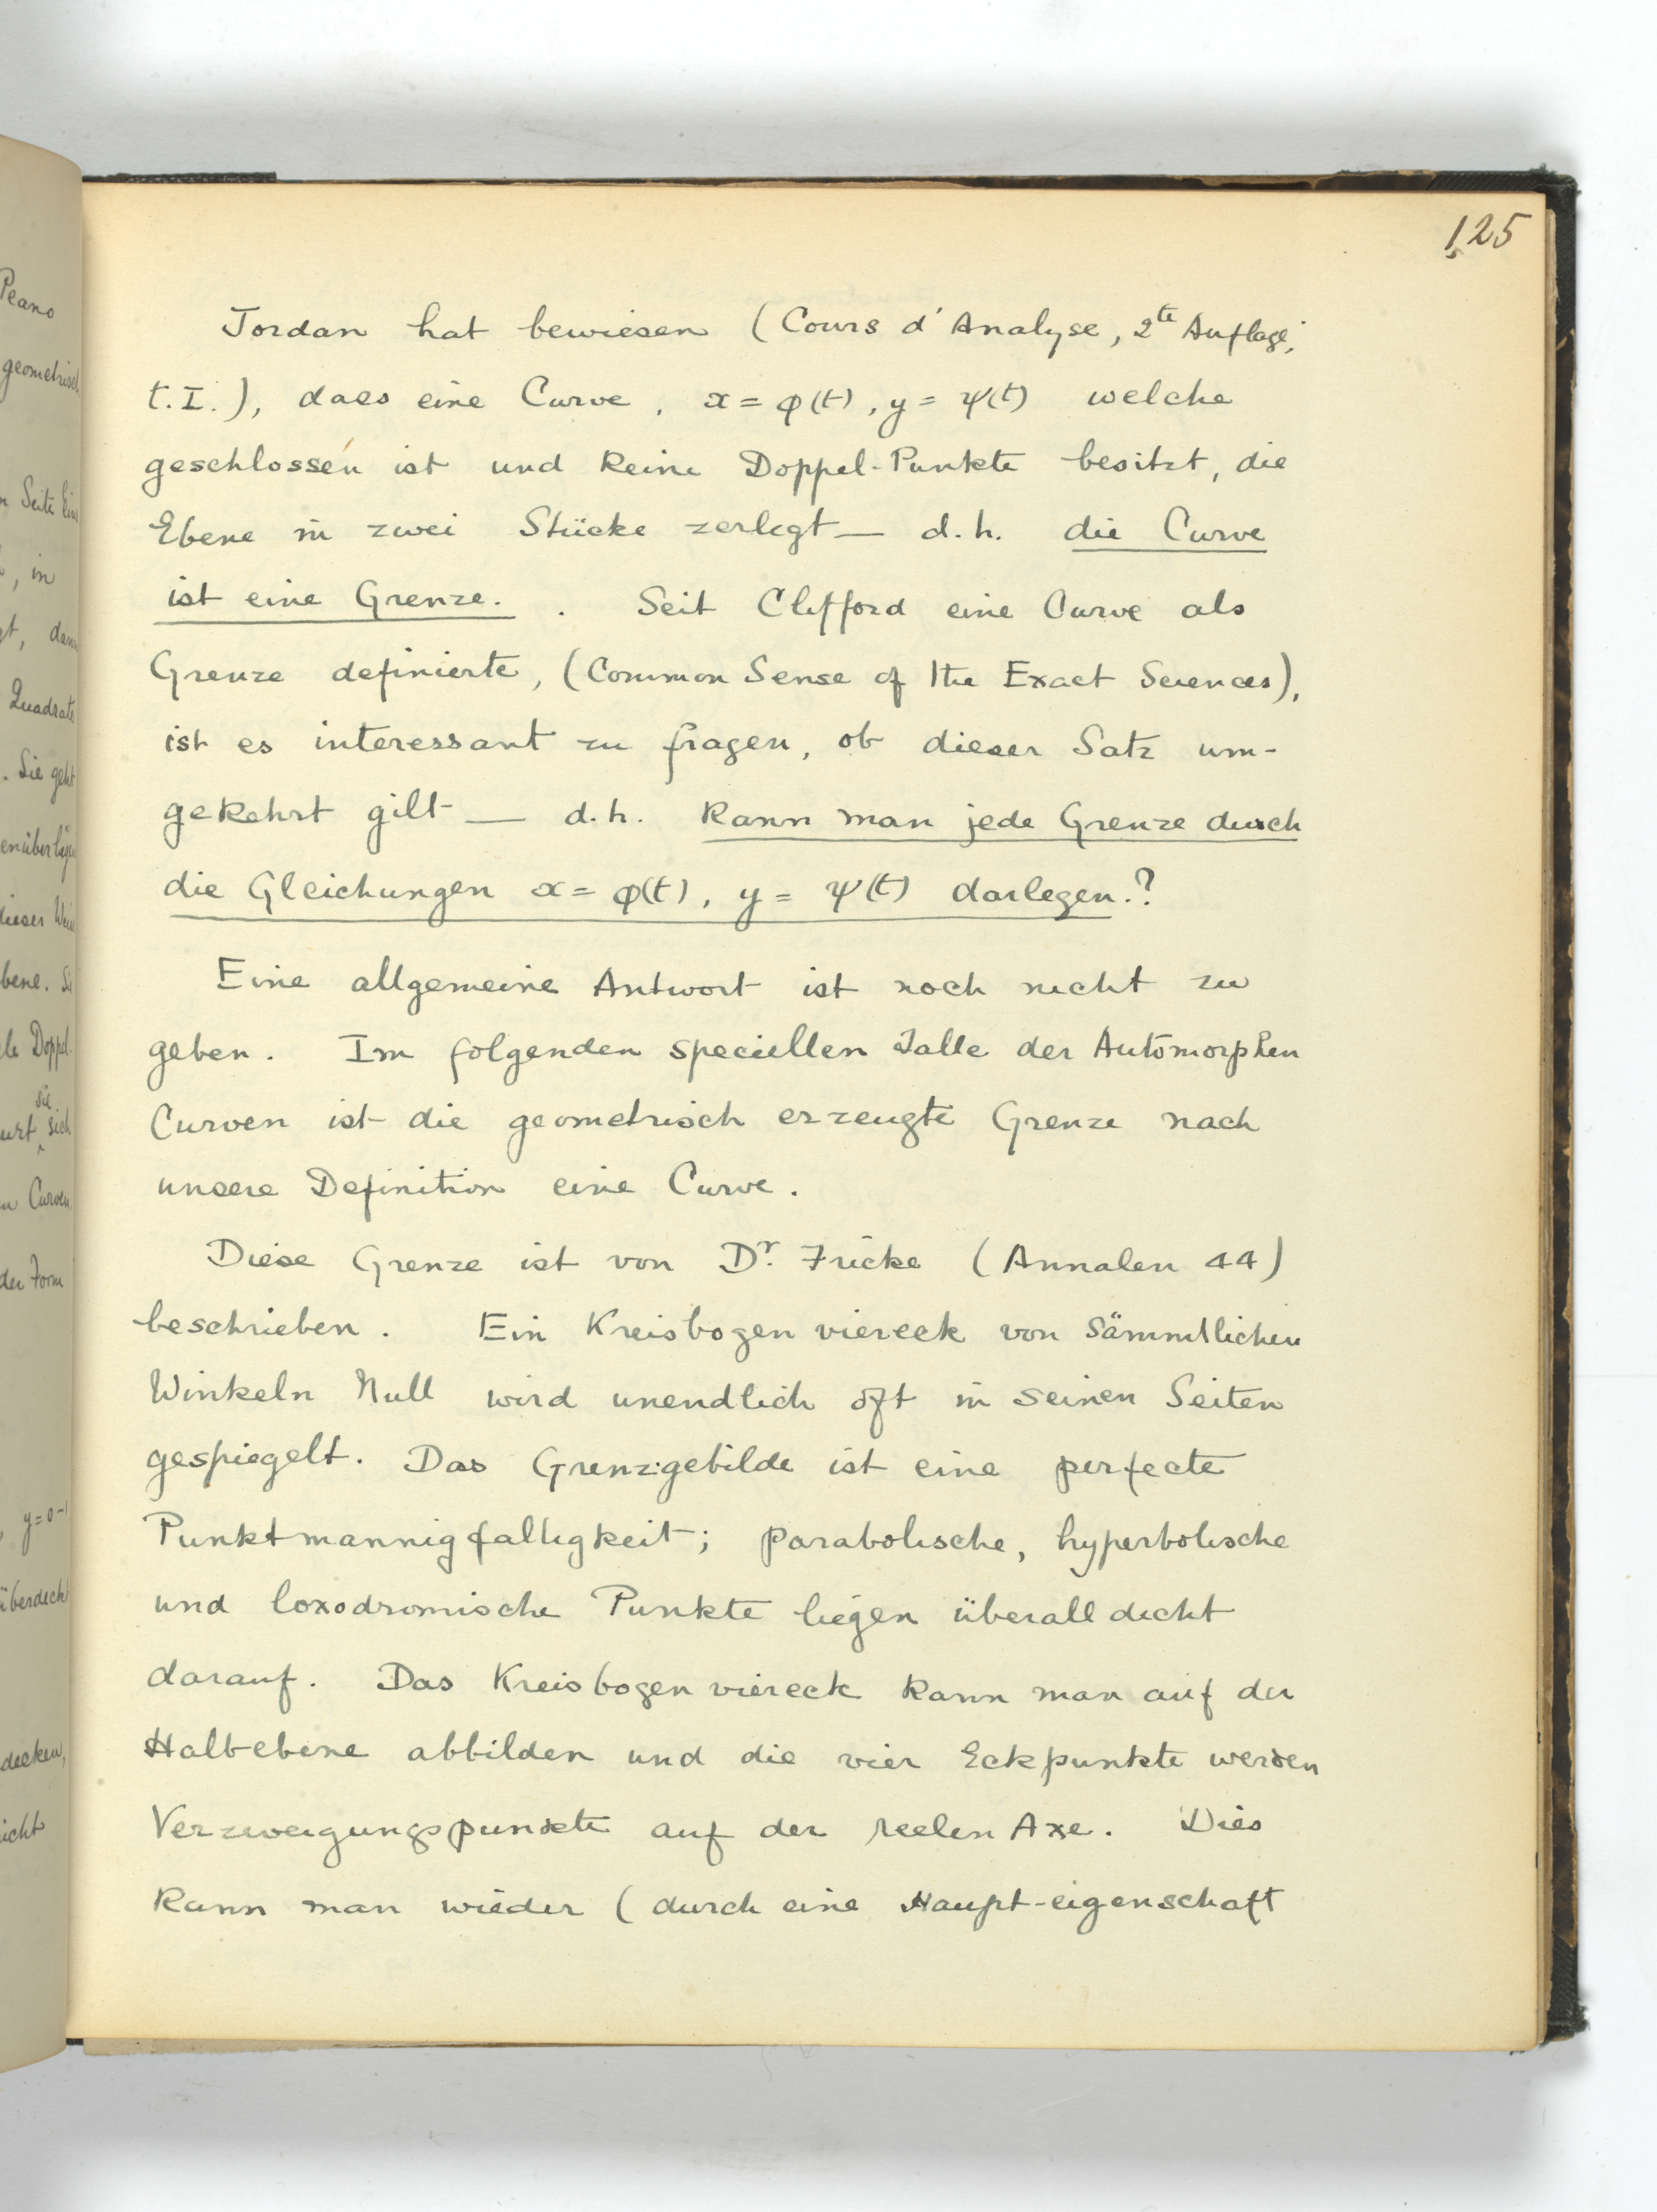 125
Jordan hat bewiesen (Cours d'Analyse, 2te Auflage,
t.I.), dass eine Curve, x = φ(t), y = ψ(t) welche
geschlossen ist und keine Doppel-Punkte besitzt, die
Ebene in zwei Stücke zerlegt — d.h. die Curve
ist eine Grenze. . Seit Clifford eine Curve als
Grenze definierte, (Common Sense of the Exact Sciences),
ist es interessant zu fragen, ob dieser Satz um-
gekehrt gilt — d.h. kann man jede Grenze durch
die Gleichungen x = φ(t), y = ψ(t) darlegen.?
Eine allgemeine Antwort ist noch nicht zu
geben. Im folgenden speciellen Falle der Automorphen
Curven ist die geometrisch erzeugte Grenze nach
unsere Definition eine Curve.
Diese Grenze ist von Dr. Fricke (Annalen 44)
beschrieben. Ein Kreisbogenviereck von sämmtlichen
Winkeln Null wird unendlich oft in seinen Seiten
gespiegelt. Das Grenzgebilde ist eine perfecte
Punktmannigfaltigkeit; parabolische, hyperbolische
und loxodromische Punkte liegen überall dicht
darauf. Das Kreisbogenviereck kann man auf der
Halbebene abbilden und die vier Eckpunkte werden
Verzweigungspunkte auf der reelen Axe. Dies
kann man wieder (durch eine Haupt-eigenschaft
Peano
geometrisch
Seite
, in
Quadrats
. Sie geht
dieser
bene.
Doppel-
sie
sich
Curven
der Form
y=0-1
überdeckt
decken,
icht